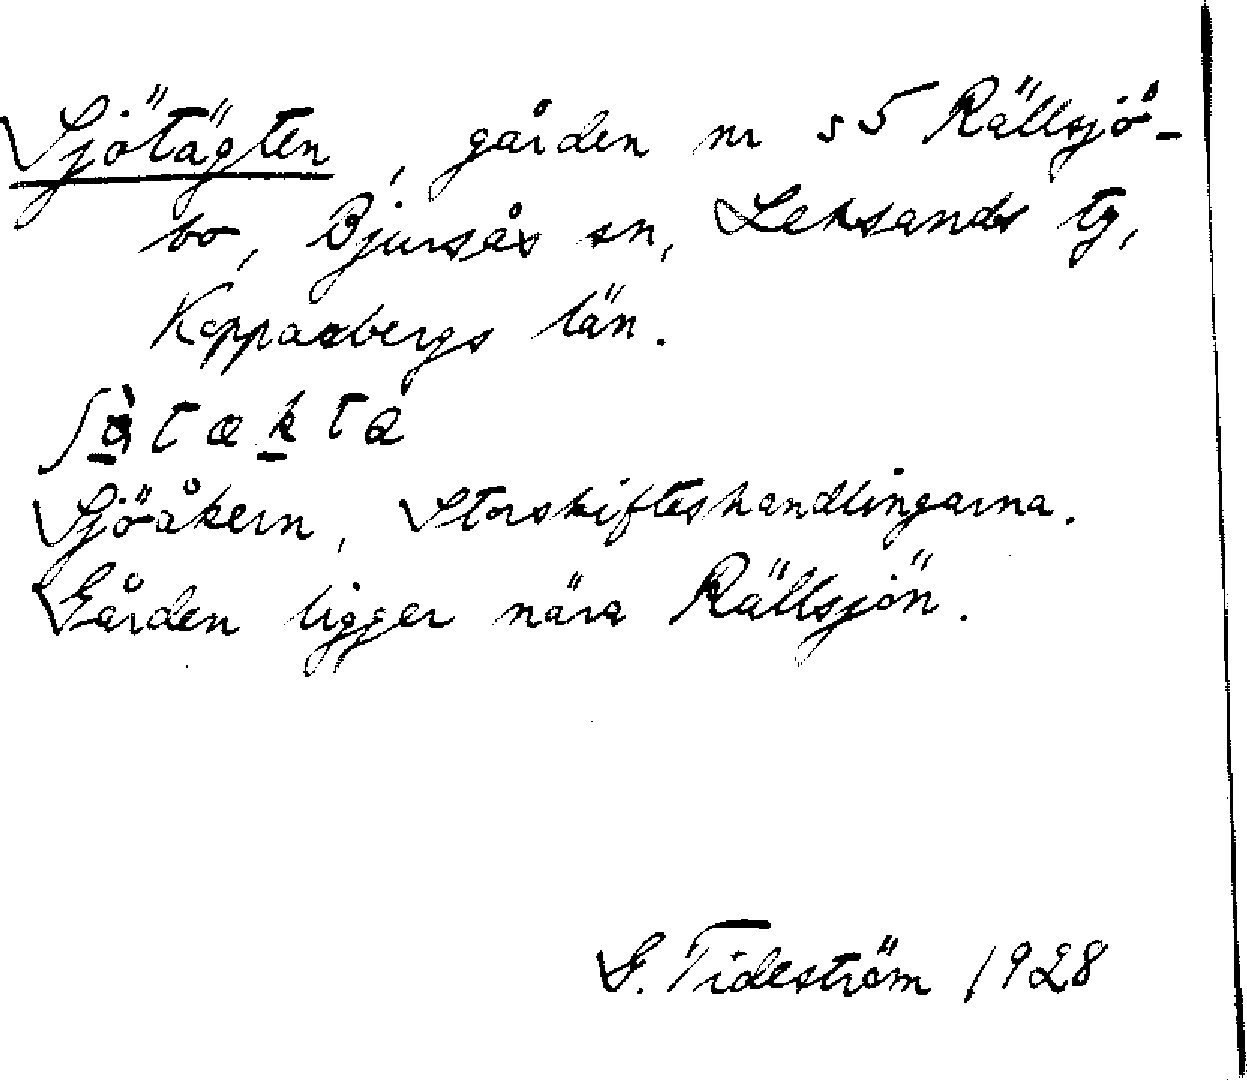 Sjötägten, gården nr 55 Rällsjö-
bo, Bjursås sn, Leksands tg,
Kopparbergs län.
Sjöåkern, Storskifteshandlingarna.
Gården ligger nära Rällsjön.
G. Tideström 1928